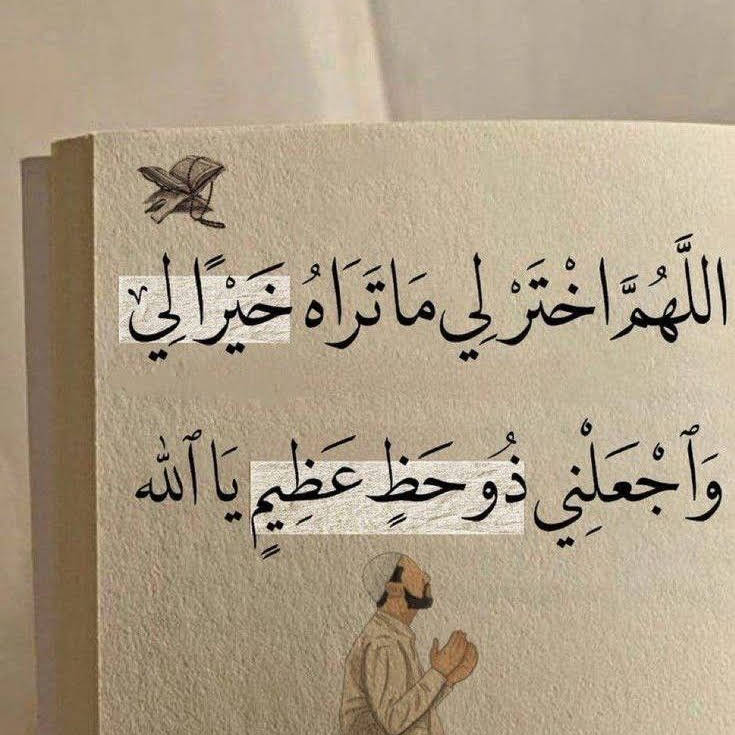 اللَّهُمَّ اخْتَرْ لِي مَا تَرَاهُ خَيْرًا لِي
وَٱجْعَلْنِي ذُو حَظٍ عَظِيمٍ يَا ٱلله